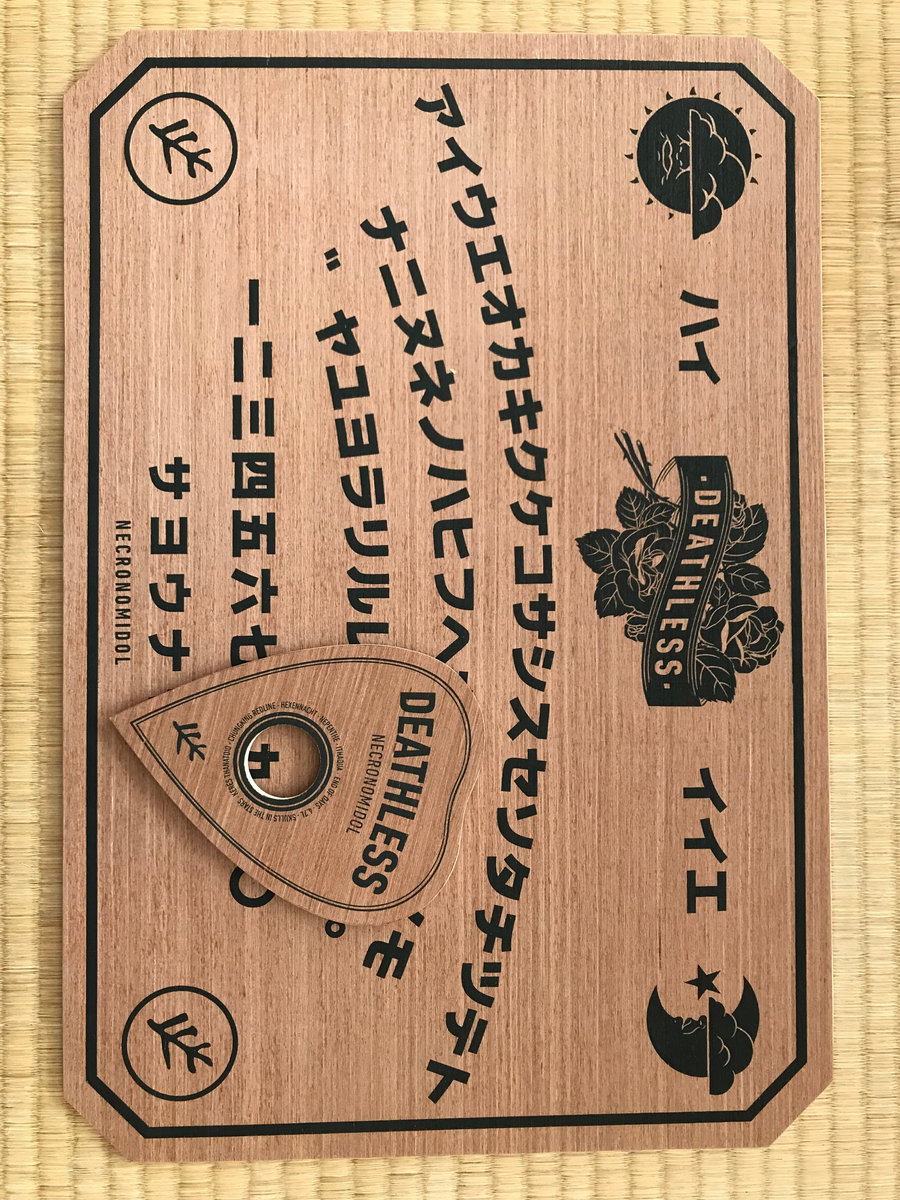 ハイ
·DEATHLESS·
イイエ
アイウエオカキクケコサシスセソタチツテト
ナニヌネノハヒフヘ モ
゛ヤユヨラリル ゜
一二三四五六七 〇
サヨウナ
NECRONOMIDOL
DEATHLESS
NECRONOMIDOL
CHUNGKING REDLINE · HEXENNACHT · NEPENTHE · ITHAQUA · END OF DAYS · 4.7L · SKULLS IN THE STARS · KERES THANATOIO